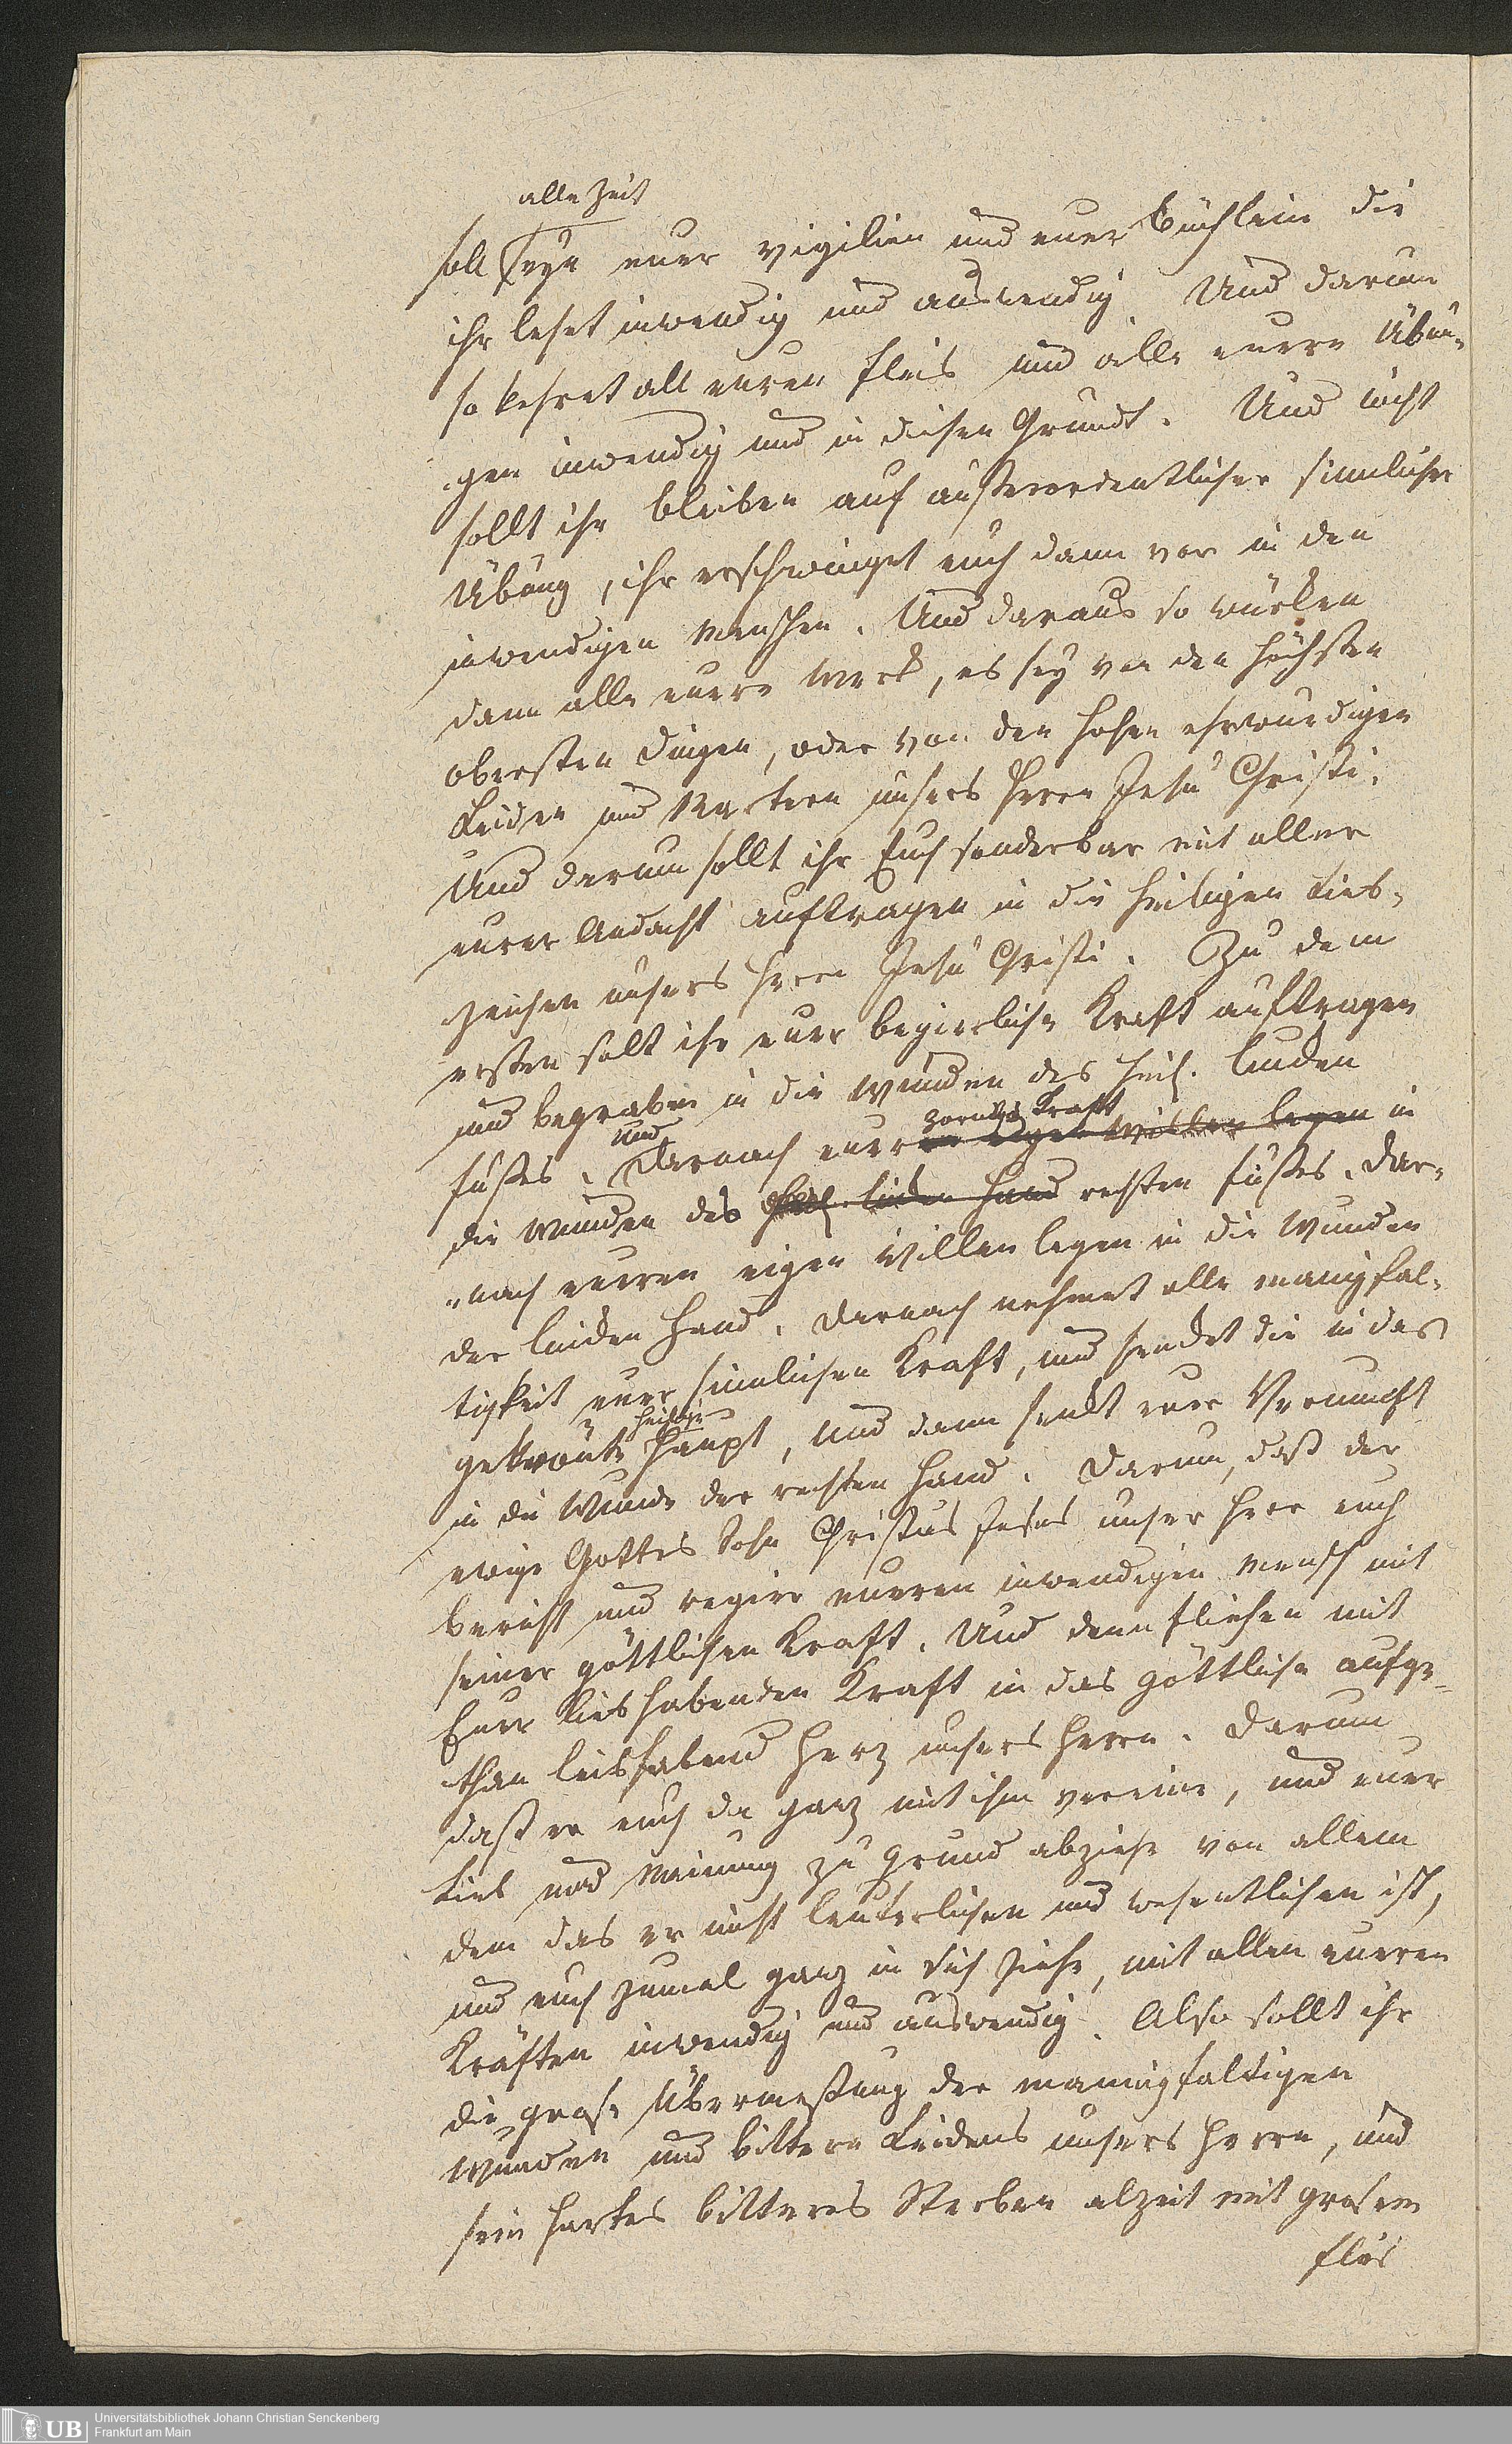 alle Zeit
soll seyn euer vigilien und euer Büchlein die
ihr leset inwendig und auswendig. Und darum
so kehret all euren fleis und alle euere Übun-
gen inwendig und in diesen Grundt. Und nicht
sollt ihr bleiben auf außerordentlicher sinnlicher
Übung, ihr erschwinget euch dann vor in den
inwendigen Menschen. Und daraus so würken
dann alle euere Werk, es sey von den höchsten
obersten dingen, oder von den hohen ehrwürdigen
Leiden und Martern unsers Herrn Jesu Christi.
Und darum sollt ihr Euch sonderbar mit aller
eurer Andacht auftragen in die heiligen Lieb-
zeichen unsers Herrn Jesu Christi. Zu dem
ersten solt ihr euer begierliche Kraft auftragen
und begraben in die Wunden des heil. linken
fußes. Und Darnach euer zornliche Kraft eigen Willen legen in
die Wunden des heil. linken Hand rechten fußes. Dar-
nach eueren eigen Willen legen in die Wunden
der linken Hand. Darnach nehmet alle manigfal-
tigkeit euer sinnlichen Kraft, und senket die in das
gekrönte heilige Haupt, und dann senkt euer Vernunft
in die Wunde der rechten Hand. Darum, daß der
ewige Gottes Sohn Christus Jesus unser Herr euch
bericht und regire eueren inwendigen Mensch mit
seiner göttlichen Kraft. Und dann fliehen mit
Eurer liebhabenden Kraft in das göttliche aufge-
than liebhabend Herz unsers Herrn. Darum
daß er euch da ganz mit ihm vereine, und euer
Lieb und Meinung zu Grund abziehe von allem
dem das er nicht lauterlichen und wesentlichen ist,
und euch zumal ganz in sich ziehe, mit allen eueren
Kräften inwendig und auswendig. Also sollt ihr
die große Übermeßung der mannigfaltigen
Wunden und bittern Leidens unsers Herrn, und
sein hartes bitteres Sterben alzeit mit grosem
fleis
Universitätsbibliothek Johann Christian Senckenberg
Frankfurt am Main
UB